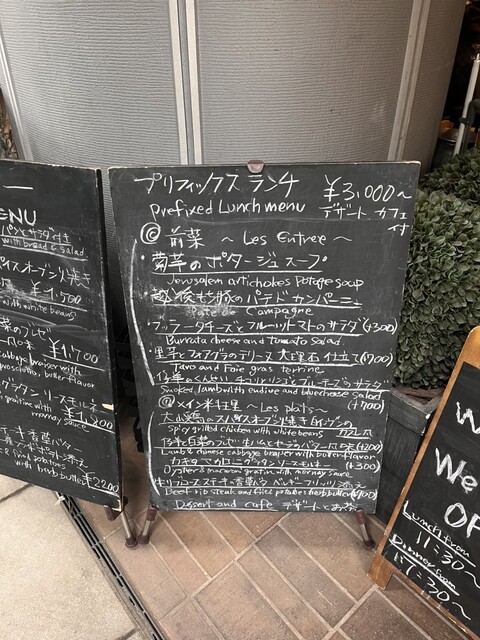 ENU
パンとサラダ付き
with bread & salad
オーブン焼き
¥1,500
with white beans
¥1,700
cabbage braiser with
prosciutto, butter flavor
グラタン ソースモルネ
gratine with
mornay sauce
¥1,800
with herb butter
¥2200
プリフィックス ランチ ¥3,000~
prefixed Lunch menu デザート カフェ付
◎ 前菜 ~ Les Entree ~
・菊芋のポタージュスープ
Jerusalem artichokes Potage soup
・越後もち豚のパテドカンパーニュ
Pate de Campagne
・ブッラータチーズとフルーツトマトのサラダ(+300)
Burrata cheese and tomato salad
・里芋とフォアグラのテリーヌ 大理石仕立て(+700)
Taro and Foie gras terrine
・仔羊のくんせい チコリとリンゴとブルーチーズのサラダ
Smoked lamb with endive and bluecheese salad
(+700)
◎ メイン料理 ~ Les plats ~
大山鶏のスパイスオーブン焼き 白インゲン
Spicy grilled chicken with white beans
仔羊と白菜のブレゼ 生ハムとセージのバター風味(+200)
Lamb & chinese cabbage braiser with butter flavor
カキとマカロニのグラタン ソースモルネー (+300)
Oyster & macaroni gratin with mornay sauce
Beef rib steak and fried potatoes herb butter
Dessert and cafe デザートとお茶
W
We
OP
Lunch from
11:30~
Dinner from
17:30~